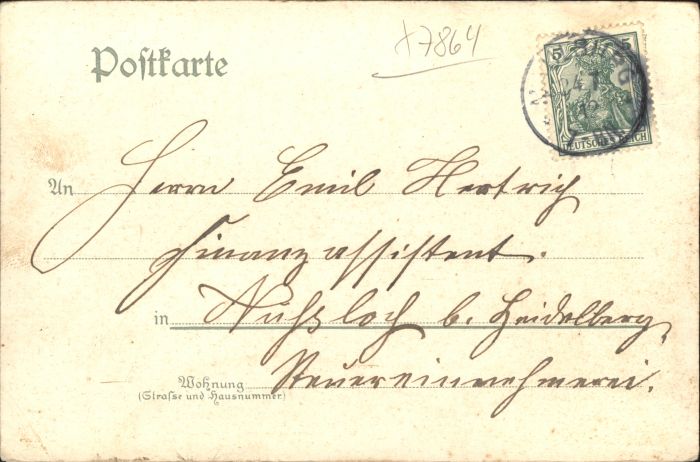 x7864
Postkarte
5 5
DEUTSCHES REICH
An Herrn Emil Hertrich
Finanzassistent.
in Nußloch b. Heidelberg,
Wohnung Steuereinnehmerei.
(Straße und Hausnummer)